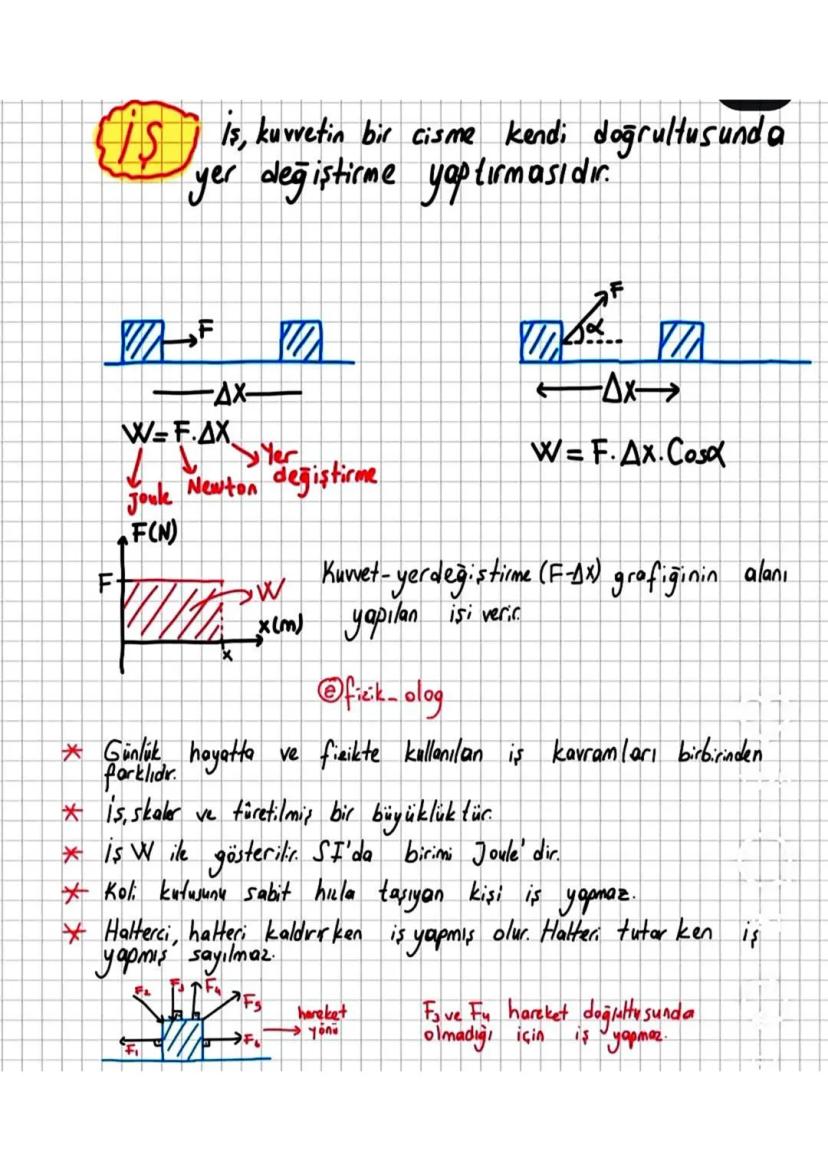 İŞ
İş, kuvvetin bir cisme kendi doğrultusunda
yer değiştirme yaptırmasıdır.
F
ΔX
W=F.ΔX
Joule Newton Yer
değiştirme
F
α
ΔX
W = F.ΔX.Cosα
F(N)
F
W
x(m)
x
Kuvvet-yerdeğiştirme (F-ΔX) grafiğinin alanı
yapılan işi verir.
@fizik_olog
* Günlük hayatta ve fizikte kullanılan iş kavramları birbirinden
farklıdır.
* İş, skaler ve türetilmiş bir büyüklüktür.
* İş W ile gösterilir. SI'da birimi Joule'dir.
* Koli kutusunu sabit hızla taşıyan kişi iş yapmaz.
* Halterci, halteri kaldırırken iş yapmış olur. Halteri tutarken iş
yapmış sayılmaz.
F₂ F₃ F₄ F₅
F₁ F₆
hareket
yönü
F₃ ve F₄ hareket doğrultusunda
olmadığı için iş yapmaz.